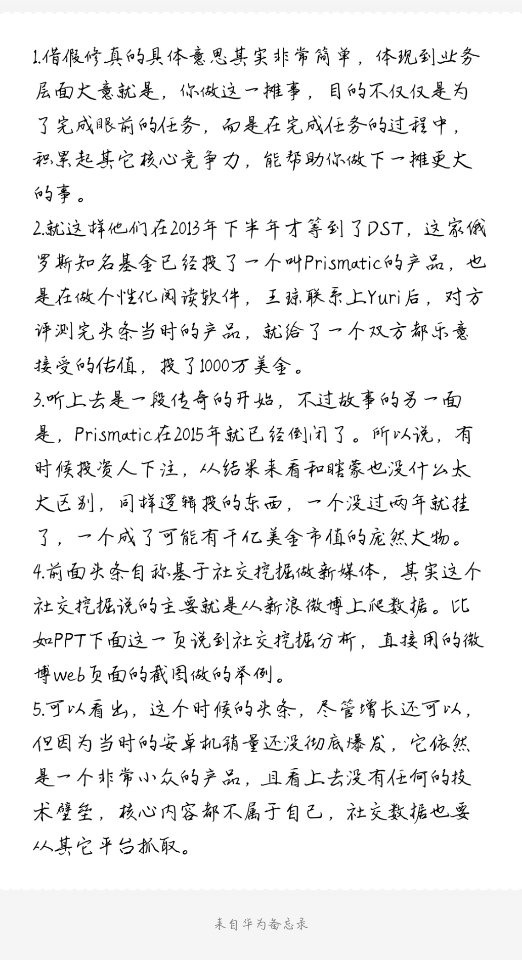 1.借假修真的具体意思其实非常简单，体现到业务
层面大意就是，你做这一摊事，目的不仅仅是为
了完成眼前的任务，而是在完成任务的过程中，
积累起其它核心竞争力，能帮助你做下一摊更大
的事。
2.就这样他们在2013年下半年才等到了DST，这家俄
罗斯知名基金已经投了一个叫Prismatic的产品，也
是在做个性化阅读软件，王琼联系上Yuri后，对方
评测完头条当时的产品，就给了一个双方都乐意
接受的估值，投了1000万美金。
3.听上去是一段传奇的开始，不过故事的另一面
是，Prismatic在2015年就已经倒闭了。所以说，有
时候投资人下注，从结果来看和瞎蒙也没什么太
大区别，同样逻辑投的东西，一个没过两年就挂
了，一个成了可能有千亿美金市值的庞然大物。
4.前面头条自称基于社交挖掘做新媒体，其实这个
社交挖掘说的主要就是从新浪微博上爬数据。比
如PPT下面这一页说到社交挖掘分析，直接用的微
博web页面的截图做的举例。
5.可以看出，这个时候的头条，尽管增长还可以，
但因为当时的安卓机销量还没彻底爆发，它依然
是一个非常小众的产品，且看上去没有任何的技
术壁垒，核心内容都不属于自己，社交数据也要
从其它平台抓取。
来自华为备忘录